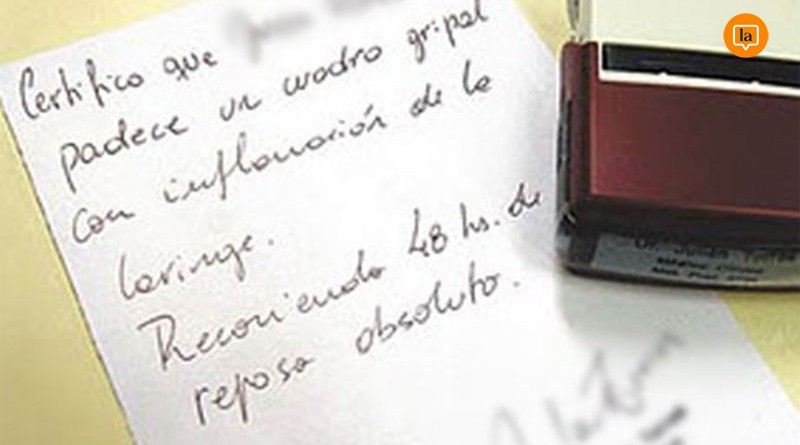 la
Certifico que
padece un cuadro gripal
con inflamación de la
laringe.
Recomiendo 48 hs. de
reposo absoluto.